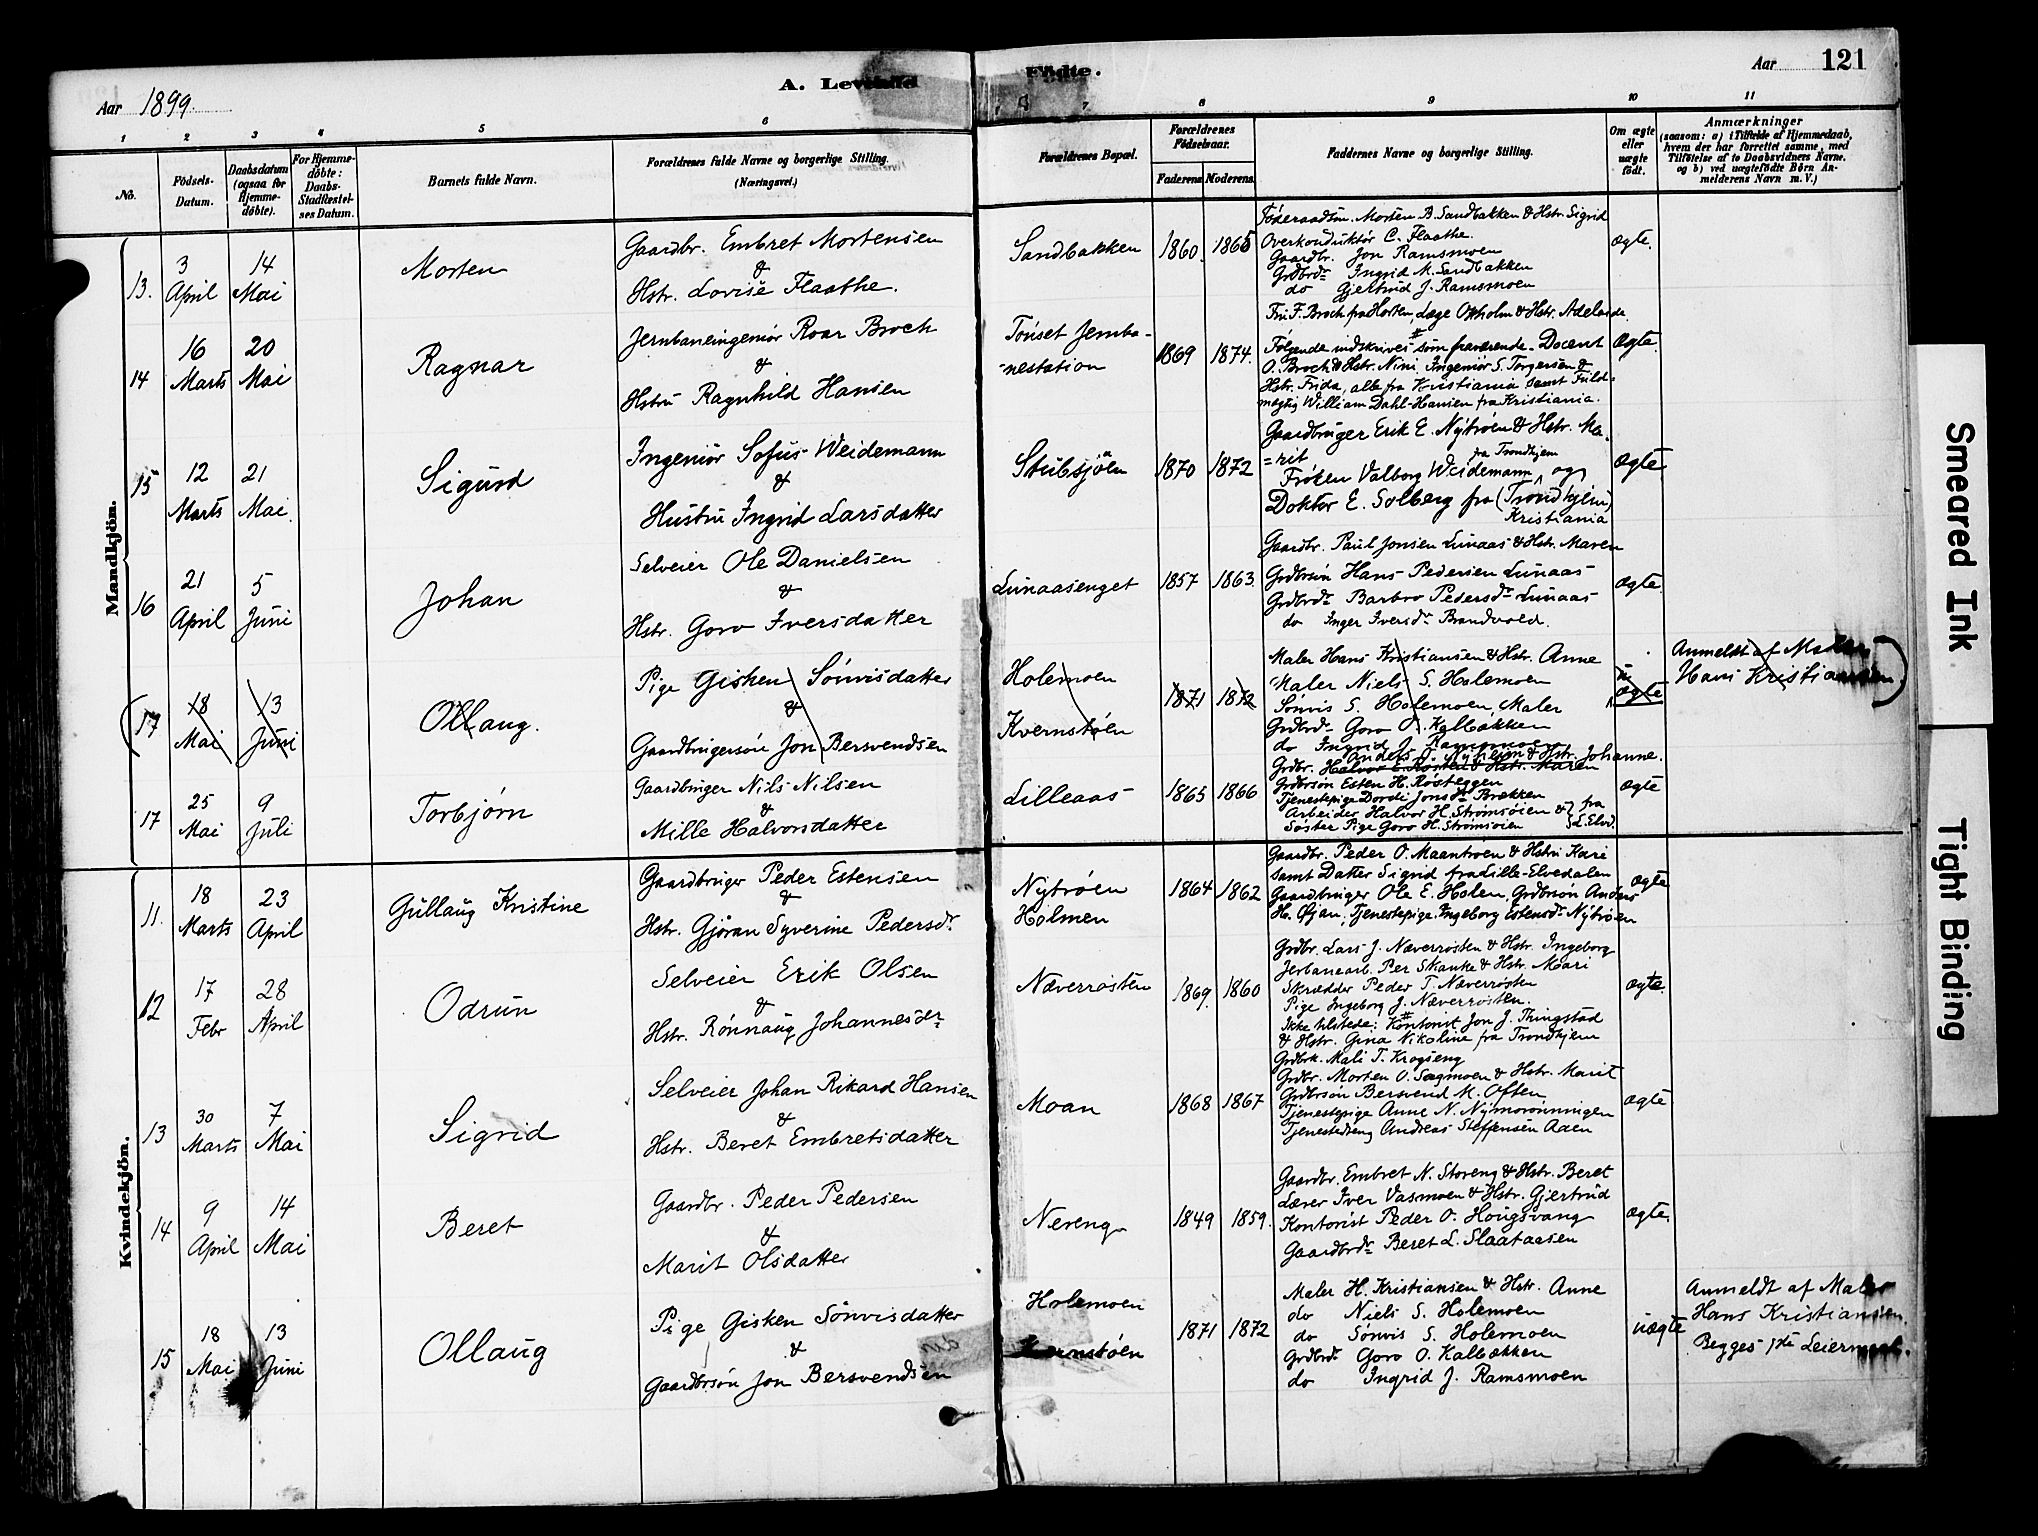 A. Levende Födte.
Aar 1899.
Aar 121
1 2 3 4 5 6 7 8 9 10 11
No.
Födsels-Datum.
Daabsdatum (ogsaa for Hjemme-döbte).
For Hjemme-döbte: Daabs-Stadfæstel-ses Datum.
Barnets fulde Navn.
Forældrenes fulde Navne og borgerlige Stilling.
(Næringsvei.)
Forældrenes Bopæl.
Forældrenes Födselsaar.
Faderens Moderens
Faddernes Navne og borgerlige Stilling.
Om ægte eller uægte født.
Anmærkninger
(saasom: a) i Tilfælde af Hjemmedaab, hvem der har forrettet samme, med Tilføielse af to Daabsvidners Navne. og b) ved uægtefödte Börn Anmelderens Navn m. V.)
Mandkjön.
13. 3 April 14 Mai
Morten
Gaardbr. Embret Mortensen
&
Hstr. Lovise Flaathe.
Sandbakken
1860 1865
Föderaadsm. Morten B. Sandbakken & Hstr. Sigrid
Overkonduktör C. Flaathe.
Gaardbr. Jon Ramsmoen
Grdbrdr Ingrid M. Sandbakken
do Gjertrud J. Ramsmoen
ægte.
14 16 Marts 20 Mai
Ragnar
Jernbaneingeniör Roar Broch
&
Hstru Ragnhild Hansen
Tönset Jernba-
-nestation
1869 1874.
Fru F. Broch fra Horten, Læge Offholm & Hstr. Adelaide.
Følgende indskrives som fraværende. Docent
O. Broch & Hstr. Nini Ingeniör S. Torgersen &
Hstr. Frida, alle fra Kristiania samt Fuld-
mægtig William Dahl-Hansen fra Kristiania.
Ægte.
15 12 Marts 21 Mai.
Sigurd
Ingeniör Sofus Weidemann
&
Hustru Ingrid Larsdatter
Stubsjöen
1870 1872
Gaardbruger Erik E. Nytröen & Hstr. Ma-
=rit
fra Trondhjem
Fröken Valborg Weidemann og
Doktor E. Solberg fra (Trondhjem)
Kristiania
Ægte
16 21 April 5 Juni
Johan
Selveier Ole Danielsen
&
Hstr. Goro Iversdatter
Lunaasenget
1857 1863.
Gaardbr. Paul Jonsen Lunaas & Hstr. Maren
Grdbrsön Hans Pedersen Lunaas
Grdbrdr Barbro Pedersdr Lunaas
do Inger Iversdr Brandvold.
ægte.
(17 18 Mai 13 Juni
Ollaug.
Pige Gisken Sönvisdatter
&
Gaardbrugersön Jon Bersvendsen
Holemoen
Kvernstöen
1871 1872
Maler Hans Kristiansen & Hstr. Anne
Maler Niels S. Holemoen
Sönvis S. Holemoen, Maler
Grdbrdr Goro O. Kalbækken
do Ingrid J. Ramsmoen
uægte
Anmeldt af Maler
Hans Kristiansen)
17 25 Mai 9 Juli
Torbjörn
Gaardbruger Nils Nilsen
&
Mille Halvorsdatter
Lilleaas
1865 1866
Anders O. Nyheim & Hstr. Johanne.
Grdbr. Halvor E. Røsten & Hstr. Maren
Grdbrsön Esten H. Röstegga
Tjenestepige Dordi Jonsdr Brækken
Arbeider Halvor H. Strömsöien & } fra
Söster Pige Goro H. Strömsöien } L. Elvd.
ægte
Kvindekjön.
11. 18 Marts 23 April
Gullaug Kristine
Gaardbruger Peder Estensen
&
Hstr. Gjöran Syverine Pedersdr.
Nytröen
Holmen
1864 1862
Gaardbr. Peder O. Maantroen & Hstru Kari
samt Datter Sigrid fra Lille-Elvedalen
Gaardbruger Ole E. Holen, Grdbrsön Anders
H. Öjan, Tjenestepige Ingeborg Estensdr Nytröen
ægte
12 17 Febr 28 April
Odrun
Selveier Erik Olsen
&
Hstr. Rönnaug Johannesdr
Næverrösten
1869. 1860
Grdbr. Lars J. Næverrösten & Hstr. Ingeborg
Jerbanearb. Per Skanke & Hstr. Mari
Skrædder Peder T. Næverrösten
Pige Ingeborg J. Næverrösten.
Ikke tilstede: Kontorist Jon J. Thingstad
& Hstr. Gina Nikoline fra Trondhjem
ægte.
13 30 Marts 7 Mai
Sigrid
Selveier Johan Rikard Hansen
&
Hstr. Beret Embretsdatter
Moan
1868 1867
Grdbrk. Mali T. Krogseng
Grdbr. Morten O. Sagmoen & Hstr. Marit
Grdbrsön Bersvend M. Often
Tjenestepige Anne N. Nymorönningen
Tjenestedreng Andreas Steffensen Aaen
ægte
14 9 April 14 Mai
Beret
Gaardbr. Peder Pedersen
&
Marit Olsdatter
Nereng
1849 1859.
Gaardbr. Embret N. Storeng & Hstr. Beret
Lærer Iver Vasmoen & Hstr. Gjertrud
Kontorist Peder O. Hougsvang
Gaardbrdr Beret L. Slaataasen
ægte.
15 18 Mai 13 Juni
Ollaug
Pige Gisken Sönvisdatter
&
Gaardbrsön Jon Bersvendsen
Holemoen
Kvernstöen
1871 1872
Maler H. Kristiansen & Hstr. Anne
do Niels S. Holemoen
do Sönvis S. Holemoen
Grdbrdr Goro O. Kalbækken
do Ingrid J. Ramsmoen
uægte
Anmeldt af Maler
Hans Kristiansen.
Begges 1ste Leiermaal.
Smeared Ink
Tight Binding